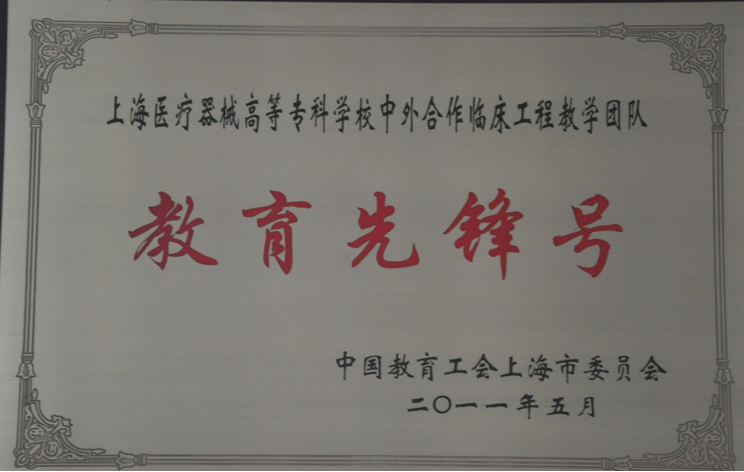 上海医疗器械高等专科学校中外合作临床工程教学团队
教育先锋号
中国教育工会上海市委员会
二〇一一年五月